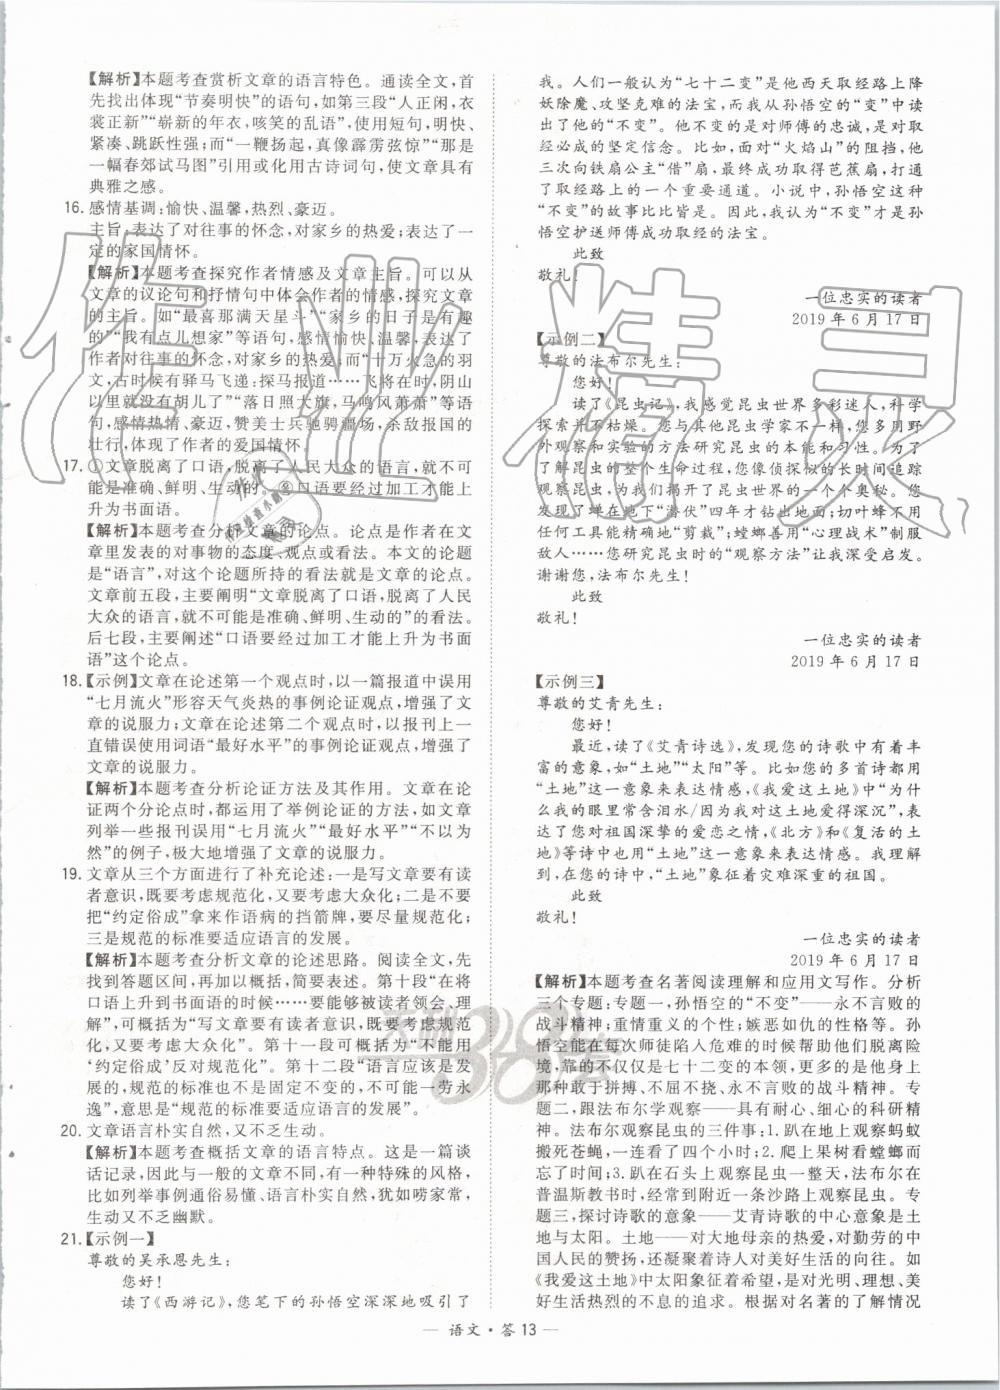 【解析】本题考查赏析文章的语言特色。通读全文,首
先找出体现“节奏明快”的语句,如第三段“人正闲,衣
裳正新”“崭新的年衣,咳笑的乱语”,使用短句,明快、
紧凑、跳跃性强;而“一鞭扬起,真像霹雳弦惊”“那是
一幅春郊试马图”引用或化用古诗词句,使文章具有
典雅之感。
16. 感情基调:愉快、温馨,热烈、豪迈。
主旨:表达了对往事的怀念,对家乡的热爱;表达了一
定的家国情怀。
【解析】本题考查探究作者情感及文章主旨。可以从
文章的议论句和抒情句中体会作者的情感,探究文章
的主旨。如“最喜那满天星斗”“家乡的日子是有趣
的”“我有点儿想家”等语句,感情愉快、温馨,表达了
作者对往事的怀念,对家乡的热爱;而“十万火急的羽
文,古时候有驿马飞递:探马报道……飞将在时,阴山
以里就没有胡儿了”“落日照大旗,马鸣风萧萧”等语
句,感情热情、豪迈,赞美士兵驰骋疆场,杀敌报国的
壮行,体现了作者的爱国情怀。
17. ①文章脱离了口语,脱离了人民大众的语言,就不可
能是准确、鲜明、生动的。②口语要经过加工才能上
升为书面语。
【解析】本题考查分析文章的论点。论点是作者在文
章里发表的对事物的态度、观点或看法。本文的论题
是“语言”,对这个论题所持的看法就是文章的论点。
文章前五段,主要阐明“文章脱离了口语,脱离了人民
大众的语言,就不可能是准确、鲜明、生动的”的看法。
后七段,主要阐述“口语要经过加工才能上升为书面
语”这个论点。
18. 【示例】文章在论述第一个观点时,以一篇报道中误用
“七月流火”形容天气炎热的事例论证观点,增强了文
章的说服力;文章在论述第二个观点时,以报刊上一
直错误使用词语“最好水平”的事例论证观点,增强了
文章的说服力。
【解析】本题考查分析论证方法及其作用。文章在论
证两个分论点时,都运用了举例论证的方法,如文章
列举一些报刊误用“七月流火”“最好水平”“不以为
然”的例子,极大地增强了文章的说服力。
19. 文章从三个方面进行了补充论述:一是写文章要有读
者意识,既要考虑规范化,又要考虑大众化;二是不要
把“约定俗成”拿来作语病的挡箭牌,要尽量规范化;
三是规范的标准要适应语言的发展。
【解析】本题考查分析文章的论述思路。阅读全文,先
找到答题区间,再加以概括,简要表述。第十段“在将
口语上升到书面语的时候……要能够被读者领会、理
解”,可概括为“写文章要有读者意识,既要考虑规范
化,又要考虑大众化”。第十一段可概括为“不能用
‘约定俗成’反对规范化”。第十二段“语言应该是发
展的,规范化的标准也不是固定不变的,不可能一劳永
逸”,意思是“规范的标准要适应语言的发展”。
20. 文章语言朴实自然,又不乏生动。
【解析】本题考查概括文章的语言特点。这是一篇谈
话记录,因此与一般的文章不同,有一种特殊的风格,
比如列举事例通俗易懂、语言朴实自然,犹如唠家常,
生动又不乏幽默。
21. 【示例一】
尊敬的吴承恩先生:
您好!
读了《西游记》,您笔下的孙悟空深深地吸引了
我。人们一般认为“七十二变”是他西天取经路上降
妖除魔、攻坚克难的法宝,而我从孙悟空的“变”中读
出了他的“不变”。他不变的是对师傅的忠诚,是对取
经必成的坚定信念。比如,面对“火焰山”的阻挡,他
三次向铁扇公主“借”扇,最终成功取得芭蕉扇,打通
了取经路上的一个重要通道。小说中,孙悟空这种
“不变”的故事比比皆是。因此,我认为“不变”才是孙
悟空护送师傅成功取经的法宝。
此致
敬礼!
一位忠实的读者
2019年6月17日
【示例二】
尊敬的法布尔先生:
您好!
读了《昆虫记》,我感觉昆虫世界多彩迷人,科学
探索并不枯燥。您与其他昆虫学家不一样,您多用野
外观察和实验的方法研究昆虫的本能和习性。为了
观察昆虫的整个生命过程,您像侦探似的长时间追踪
观察昆虫,为我们揭开了昆虫世界的一个个奥秘。您
发现了蝉在地下“潜伏”四年才钻出地面;切叶蜂不用
任何工具能精确地“剪裁”;螳螂善用“心理战术”制服
敌人……您研究昆虫时的“观察方法”让我深受启发。
谢谢您,法布尔先生!
此致
敬礼!
一位忠实的读者
2019年6月17日
【示例三】
尊敬的艾青先生:
您好!
最近,读了《艾青诗选》,发现您的诗歌中有着丰
富的意象,如“土地”“太阳”等。比如您的多首诗都用
“土地”这一意象来表达情感,《我爱这土地》中“为什
么我的眼里常含泪水/因为我对这土地爱得深沉”,表
达了您对祖国深挚的爱恋之情,《北方》和《复活的土
地》等诗中也用“土地”这一意象来表达情感。我理解,
在您的诗中,“土地”象征着灾难深重的祖国。
此致
敬礼!
一位忠实的读者
2019年6月17日
【解析】本题考查名著阅读理解和应用文写作。分析
三个专题:专题一,孙悟空的“不变”——永不言败的
战斗精神;重情重义的个性;嫉恶如仇的性格等。孙
悟空能在每次师徒陷入危难的时候帮助他们脱离险
境,靠的不仅仅是七十二变的本领,更主要的是他那种
敢于拼搏、不屈不挠、永不言败的战斗精神。专
题二,跟法布尔学观察——具有耐心、细心的科研精
神。法布尔观察昆虫的三件事:1.趴在地上观察蚂蚁
搬死苍蝇,一连看了四个小时;2.爬上果树看螳螂而
忘记了时间;3.趴在石头上观察昆虫一整天,法布尔在
普温斯教书时,近视到附近一条沙路上观察昆虫。专
题三,探讨诗歌的意象——艾青诗歌的中心意象是土
地与太阳。土地——对大地母亲的热爱,对勤劳的中
国人民的赞扬,还凝聚着诗人对美好生活的向往。如
《我爱这土地》中太阳象征着希望,是对光明、理想、美
好生活热烈的不息的追求。根据对名著的了解情况
— 语文·答13 —
作业精灵
天利38套